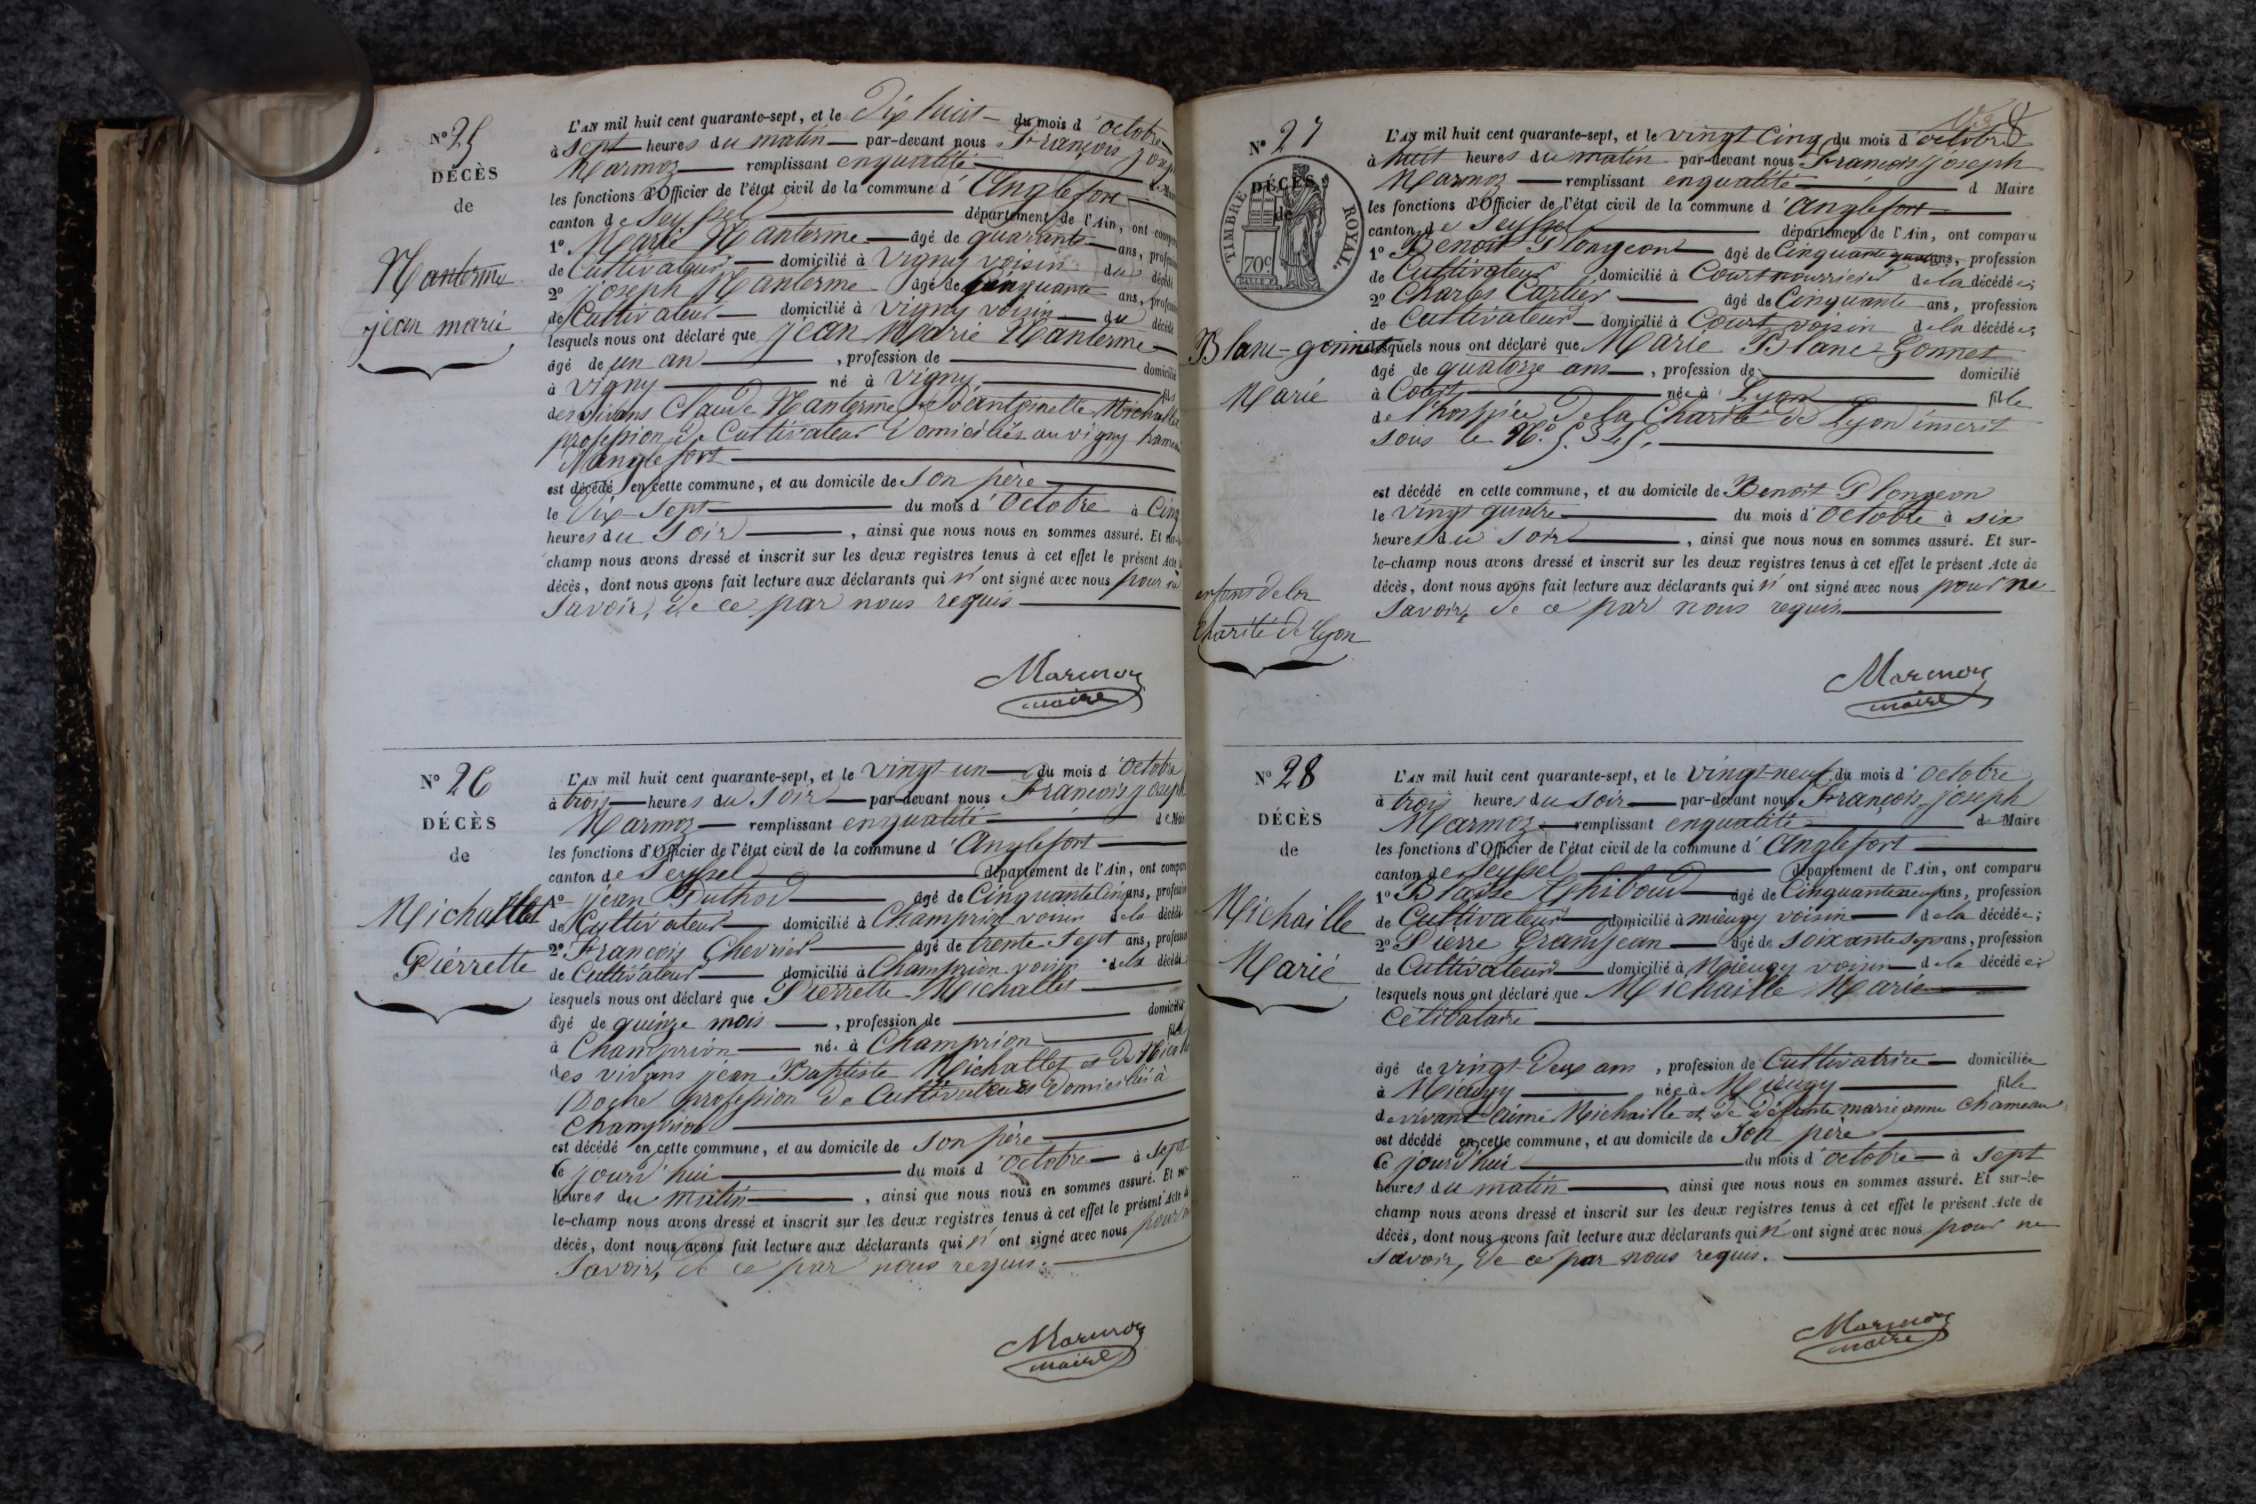 N° 25
DÉCÈS
de
Nanterme
jean marie
L'AN mil huit cent quarante-sept, et le Dix huit du mois d'octobre
à sept heures du matin par-devant nous François Jos
Marmoz remplissant en qualité de Maire
les fonctions d'Officier de l'état civil de la commune d'Anglefort
canton de Seyssel département de l'Ain, ont comparu
1° Marie Nanterme âgé de quarante ans, profession
de Cultivateur domicilié à Vigny voisin du décédé
2° joseph Nanterme âgé de cinquante ans, profession
de Cultivateur domicilié à Vigny voisin du décédé
lesquels nous ont déclaré que jean Marie Nanterme
âgé de un an, profession de domicilié
à Vigny né à Vigny fils
des vivans Claude Nanterme et d'antoinette Michallet
profession de Cultivateur Domiciliés au vigny hameau
d'anglefort
est décédé en cette commune, et au domicile de son père
le Dix Sept du mois d'Octobre à Cinq
heures du Soir, ainsi que nous nous en sommes assuré. Et sur-le-
champ nous avons dressé et inscrit sur les deux registres tenus à cet effet le présent Acte de
décès, dont nous avons fait lecture aux déclarants qui n'ont signé avec nous pour ne
Savoir, de ce par nous requis
Marmoz
maire
N° 26
DÉCÈS
de
Michallet
Pierrette
L'AN mil huit cent quarante-sept, et le vingt-un du mois d'octobre
à trois heures du Soir par-devant nous François joseph
Marmoz remplissant en qualité de Maire
les fonctions d'Officier de l'état civil de la commune d'Anglefort
canton de Seyssel département de l'Ain, ont comparu
1° jean Duthod âgé de Cinquante Cinq ans, profession
de Cultivateur domicilié à Champrion voisin de la décédée
2° François Chevrier âgé de trente sept ans, profession
de Cultivateur domicilié à Champrion voisin de la décédée
lesquels nous ont déclaré que Pierrette Michallet
âgé de quinze mois, profession de domicilié
à Champrion née à Champrion fille
des vivans jean Baptiste Michallet et de
profession de Cultivateurs Domiciliés à
Champrion
est décédé en cette commune, et au domicile de son père
Ce jourd'hui du mois d'octobre à sept
heures du matin, ainsi que nous nous en sommes assuré. Et sur-
le-champ nous avons dressé et inscrit sur les deux registres tenus à cet effet le présent Acte de
décès, dont nous avons fait lecture aux déclarants qui n'ont signé avec nous pour ne
Savoir, de ce par nous requis.
Marmoz
maire
8
N° 27
DÉCÈS
de
TIMBRE ROYAL.
70c
Blanc-gonnet
Marie
enfant de la
Charité de Lyon
L'AN mil huit cent quarante-sept, et le vingt Cinq du mois d'octobre
à huit heures du matin par-devant nous François joseph
Marmoz remplissant en qualité d Maire
les fonctions d'Officier de l'état civil de la commune d'Anglefort
canton de Seyssel département de l'Ain, ont comparu
1° Benoit Plongeon âgé de Cinquante ans, profession
de Cultivateur domicilié à Court nourricier de la décédée;
2° Charles Cartier âgé de Cinquante ans, profession
de Cultivateur domicilié à Court voisin de la décédée;
lesquels nous ont déclaré que Marie Blanc-Gonnet
âgé de quatorze ans, profession de domicilié
à Court née à Lyon fille
de l'hospice de la Charité de Lyon inscrit
sous le N°
est décédé en cette commune, et au domicile de Benoit Plongeon
le vingt quatre du mois d'Octobre à six
heures du soir, ainsi que nous nous en sommes assuré. Et sur-
le-champ nous avons dressé et inscrit sur les deux registres tenus à cet effet le présent Acte de
décès, dont nous avons fait lecture aux déclarants qui n'ont signé avec nous pour ne
Savoir, de ce par nous requis
Marmoz
maire
N° 28
DÉCÈS
de
Michaille
Marie
L'AN mil huit cent quarante-sept, et le vingt-neuf du mois d'octobre
à trois heures du soir par-devant nous François joseph
Marmoz remplissant en qualité de Maire
les fonctions d'Officier de l'état civil de la commune d'Anglefort
canton de Seyssel département de l'Ain, ont comparu
1° Blaise Thiboud âgé de Cinquante ans, profession
de Cultivateur domicilié à mieugy voisin de la décédée;
2° Pierre Granjean âgé de soixante sept ans, profession
de Cultivateur domicilié à Mieugy voisin de la décédée
lesquels nous ont déclaré que Michaille Marie
Célibataire
âgé de vingt-Deux ans, profession de Cultivatrice domiciliée
à Mieugy née à Mieugy fille
de vivant aimé Michaille et de défunte marie anne Chameau
est décédé en cette commune, et au domicile de Son père
Ce jourd'hui du mois d'octobre à sept
heures du matin, ainsi que nous nous en sommes assuré. Et sur-le-
champ nous avons dressé et inscrit sur les deux registres tenus à cet effet le présent Acte de
décès, dont nous avons fait lecture aux déclarants qui n'ont signé avec nous pour ne
Savoir, de ce par nous requis.
Marmoz
maire